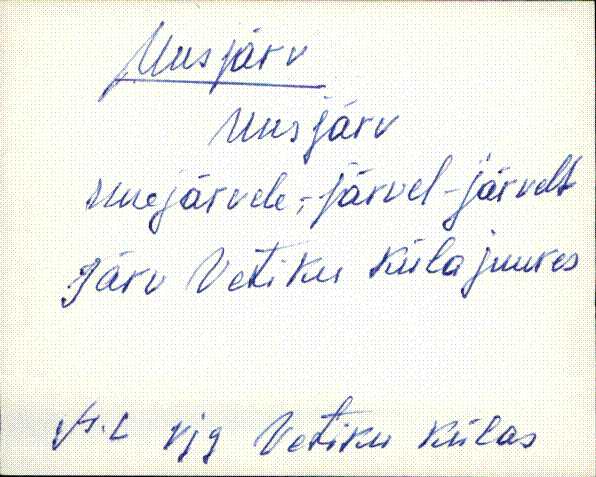 Uusjärv
Uusjärv
uuejärvele, -järvel -järvelt
Järv Vetiku küla juures
Vetiku külas